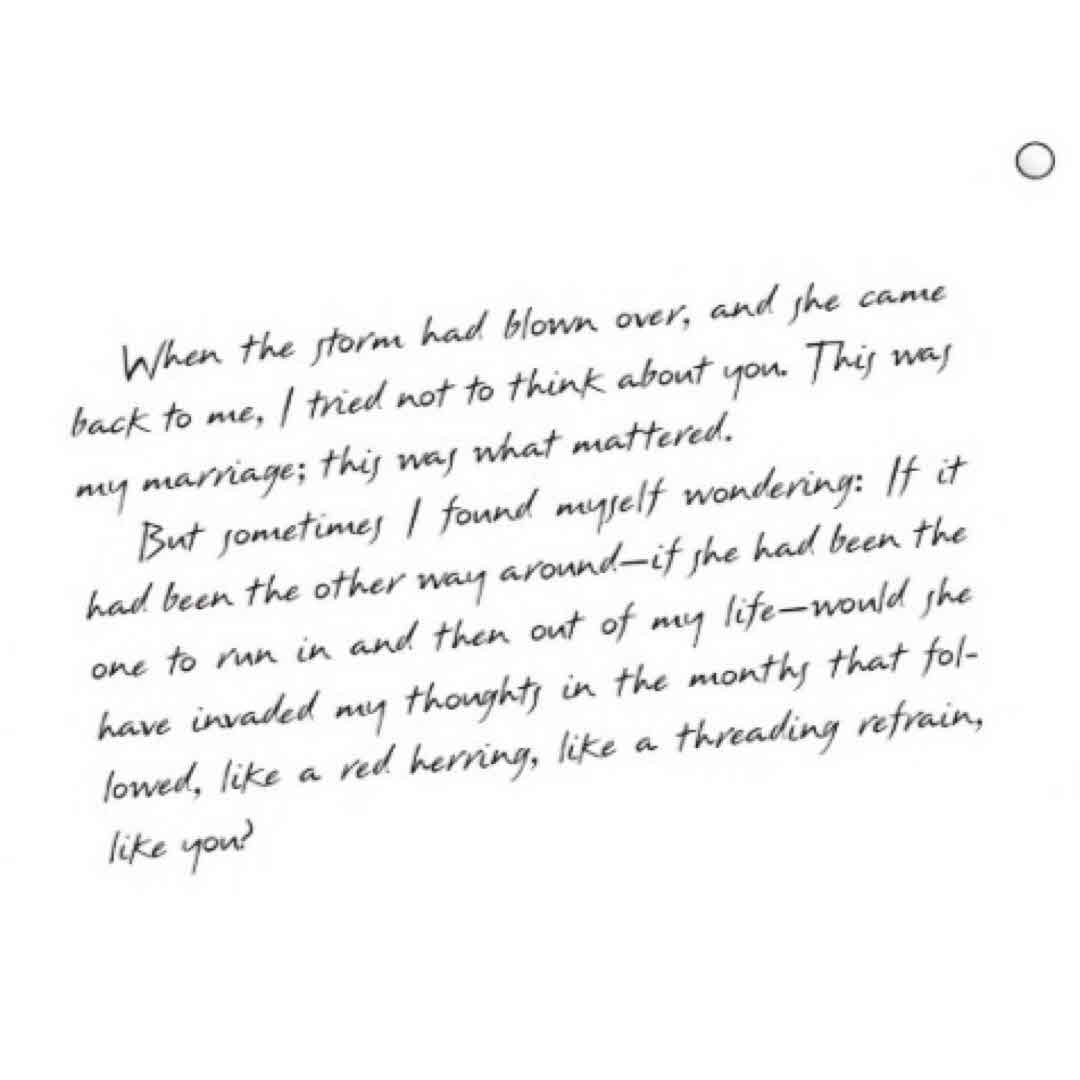 When the storm had blown over, and she came
back to me, I tried not to think about you. This was
my marriage; this was what mattered.
But sometimes I found myself wondering: If it
had been the other way around—if she had been the
one to run in and then out of my life—would she
have invaded my thoughts in the months that fol-
lowed, like a red herring, like a threading refrain,
like you?